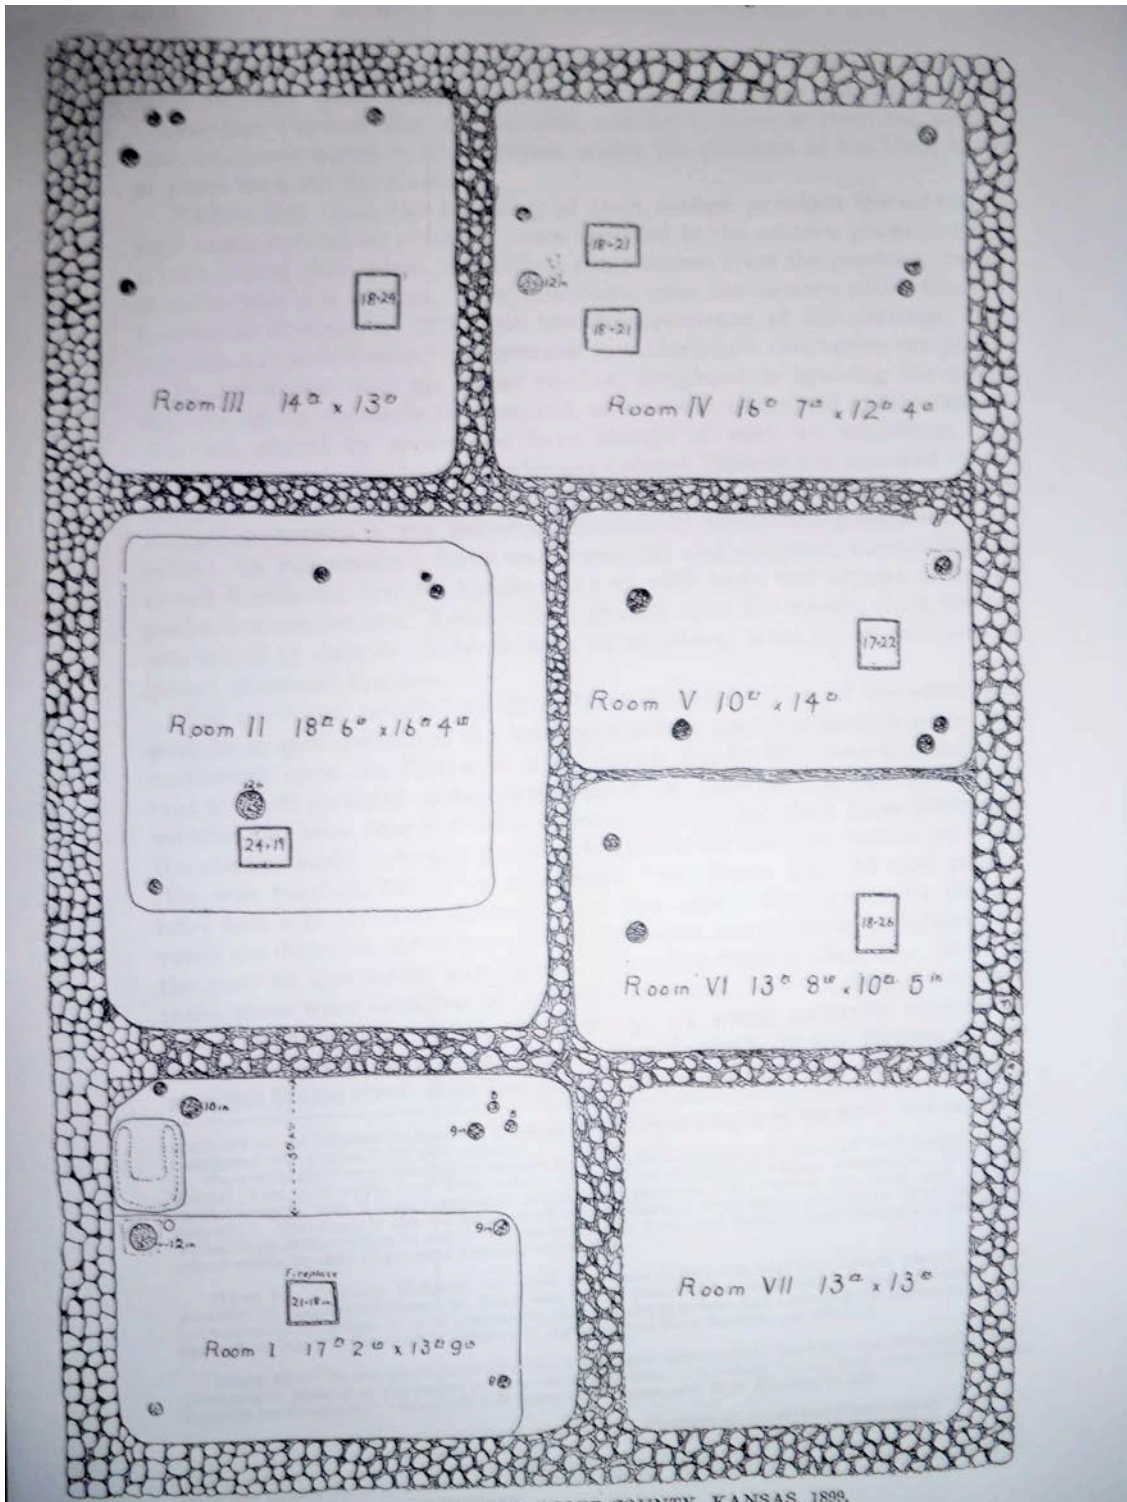 18·24
Room III 14ft x 13ft
18·21
12in
18·21
Room IV 16ft 7in x 12ft 4in
Room II 18ft 6in x 16ft 4in
12in
24·19
17·22
Room V 10ft x 14ft
18·26
Room VI 13ft 8in x 10ft 5in
10in
5
5
9in
9in
12in
Fireplace
21·18in
Room I 17ft 2in x 13ft 9in
8
Room VII 13ft x 13ft
COUNTY, KANSAS, 1899.